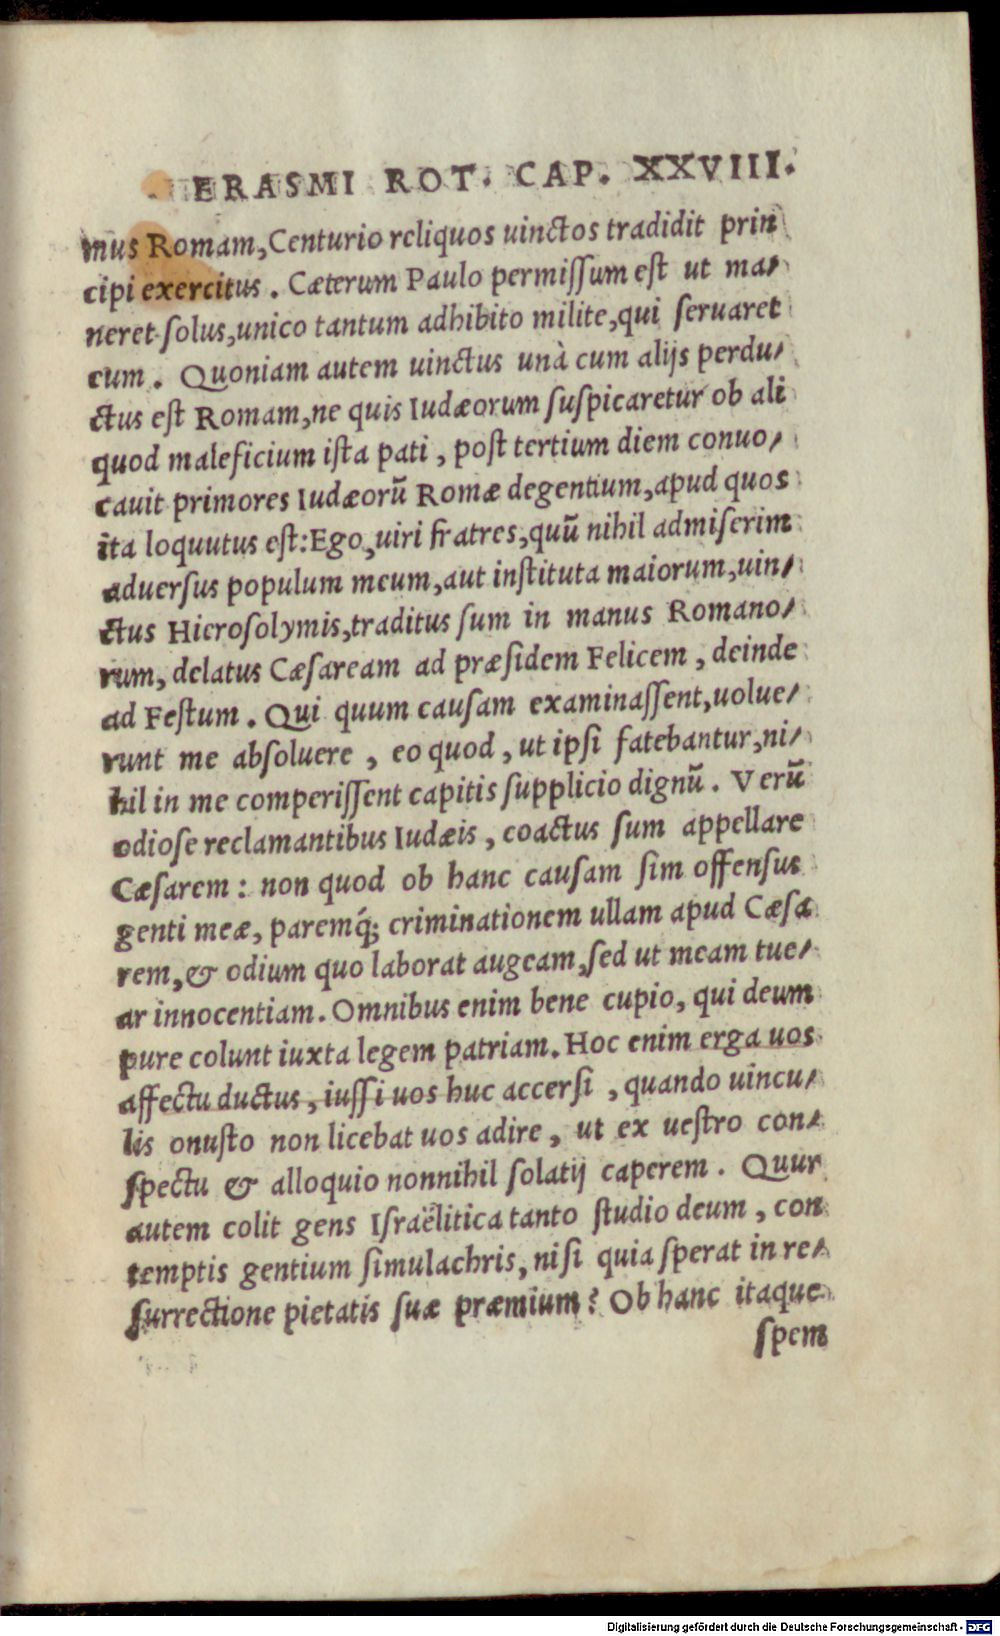 ERASMI ROT. CAP. XXVIII.
mus Romam, Centurio reliquos uinctos tradidit prin
cipi exercitus. Cæterum Paulo permiſſum eſt ut ma⸗
neret ſolus, unico tantum adhibito milite, qui ſeruaret
eum. Quoniam autem uinctus unà cum alijs perdu⸗
ctus eſt Romam, ne quis Iudæorum ſuſpicaretur ob ali
quod maleficium iſta pati, poſt tertium diem conuo⸗
cauit primores Iudæorū Romæ degentium, apud quos
ita loquutus eſt: Ego, uiri fratres, quū nihil admiſerim
aduerſus populum meum, aut inſtituta maiorum, uin⸗
ctus Hieroſolymis, traditus ſum in manus Romano⸗
rum, delatus Cæſaream ad præſidem Felicem, deinde
ad Feſtum. Qui quum cauſam examinaſſent, uolue⸗
runt me abſoluere, eo quod, ut ipſi fatebantur, ni⸗
hil in me comperiſſent capitis ſupplicio dignū. Verū
odioſe reclamantibus Iudæis, coactus ſum appellare
Cæſarem: non quod ob hanc cauſam ſim offenſus
genti meæ, paremq́; criminationem ullam apud Cæſa
rem, & odium quo laborat augeam, ſed ut meam tue⸗
ar innocentiam. Omnibus enim bene cupio, qui deum
pure colunt iuxta legem patriam. Hoc enim erga uos
affectu ductus, iuſſi uos huc accerſi, quando uincu⸗
lis onuſto non licebat uos adire, ut ex ueſtro con⸗
ſpectu & alloquio nonnihil ſolatij caperem. Quur
autem colit gens Iſraëlitica tanto ſtudio deum, con
temptis gentium ſimulachris, niſi quia ſperat in re⸗
ſurrectione pietatis ſuæ præmium? Ob hanc itaque
ſpem
Digitalisierung gefördert durch die Deutsche Forschungsgemeinschaft - DFG